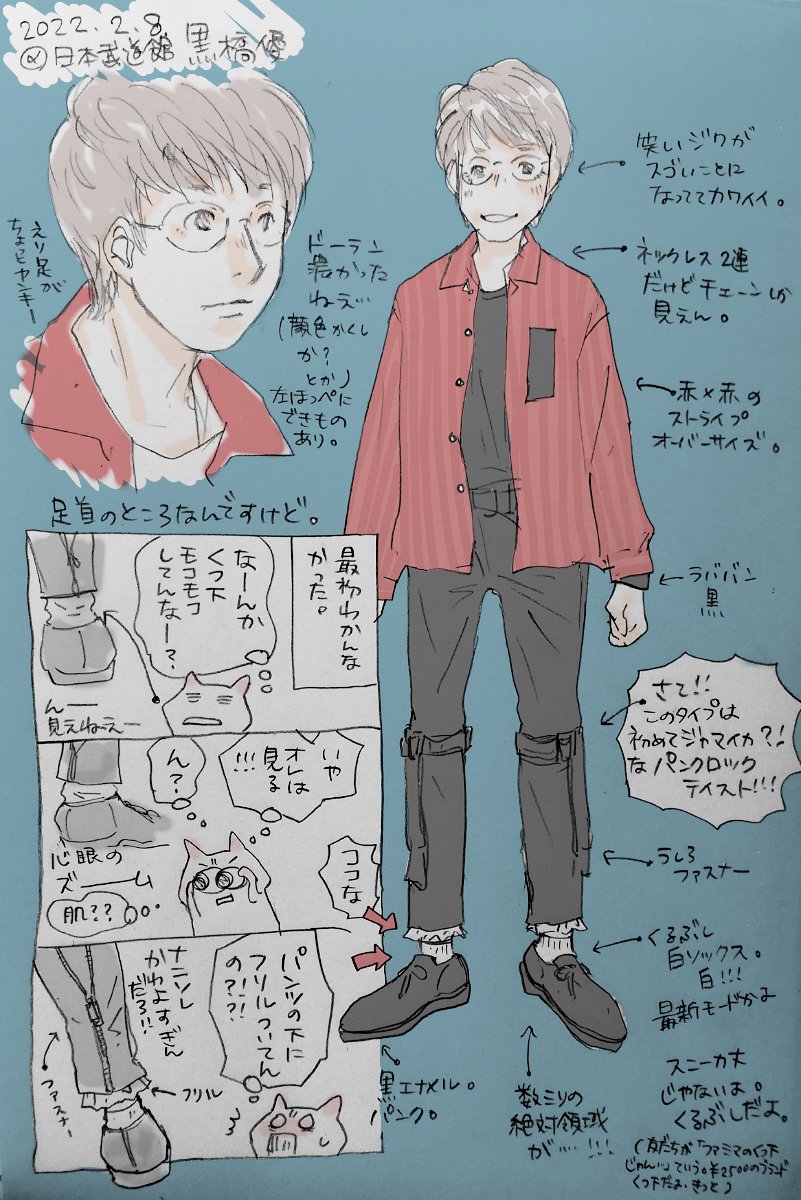 2022.2.8
@日本武道館 黒橋優
えり足が
ちょっとヤンキー
ドーラン
濃かった
ねえ…
(顔色かくし
か?
とか)
左ほっぺに
できもの
あり。
笑いジワが
スゴいことに
なっててカワイイ。
ネックレス2連
だけどチェーンしか
見えん。
赤×赤の
ストライプ
オーバーサイズ。
ラババン
黒
さて!!
このタイプは
初めてジャマイカ?!
なパンクロック
テイスト!!!
うしろ
ファスナー
くるぶし
白ソックス。
白!!!
最新モードかよ
スニーカ丈
じゃないよ。
くるぶしだよ。
(友だちが「ファミマのくつ下
じゃん…」ていう。¥2500のブランド
くつ下だよ、きっと)
数ミリの
絶対領域
が……!!!
黒エナメル。
パンク。
足首のところなんですけど。
最初わかんな
かった。
なーんか
くつ下
モコモコ
してんなー?
んー
見えねえー
いや
オレは
見る
!!!
ん?
心眼の
ズーーム
肌??
ココな
パンツの下に
フリルついてん
の?!?!
ナニソレ
かわよすぎん
だろ!!
ファスナー
フリル